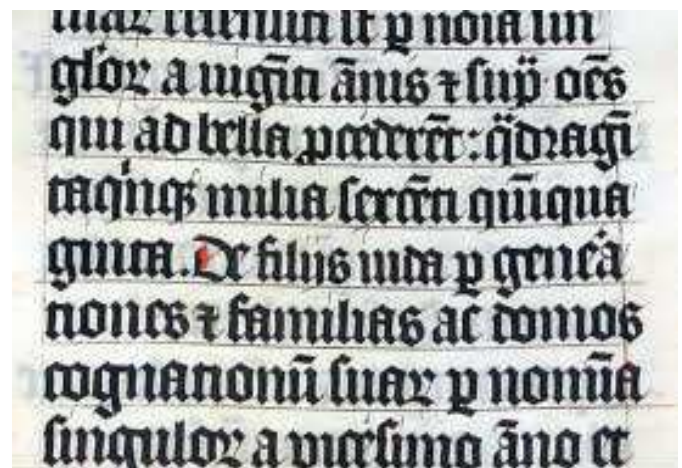 suaꝝ recensiti st ꝑ noīa sin
gloꝝ a uigīti ānis ⁊ supͣ oēs
qui ad bella ꝓcederēt: qͣdragī
taqͥnqꝫ milia sexcēti quīqua
ginta. De filijs iuda ꝑ genеͣa
tiones ⁊ familias ac domos
cognationū suaꝝ ꝑ nomīa
singuloꝝ a vicesimo āno et